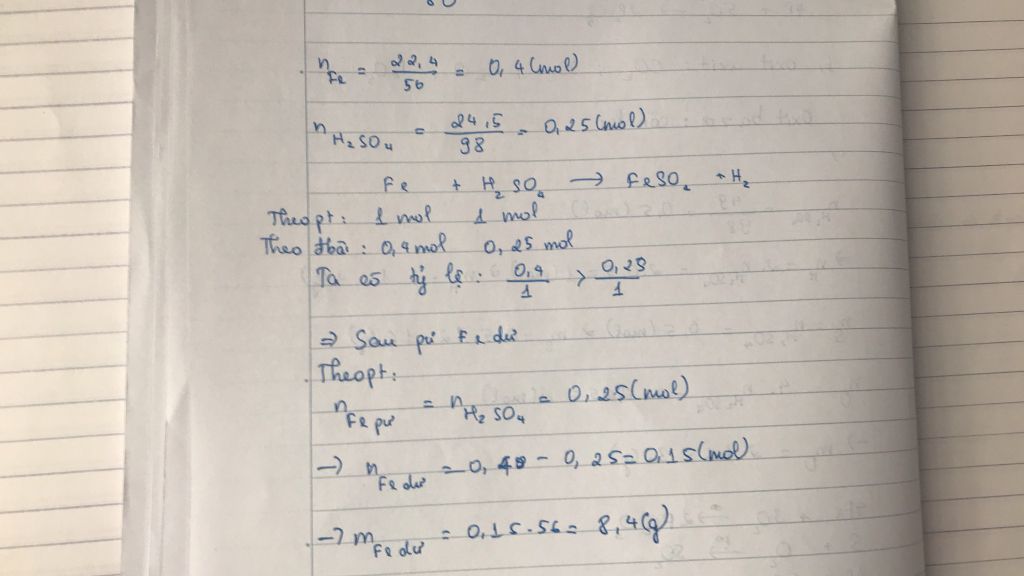 n Fe = 22,4/56 = 0,4 (mol)
n H₂SO₄ = 24,5/98 = 0,25 (mol)
Fe + H₂SO₄ → FeSO₄ + H₂
Theo pt: 1 mol 1 mol
Theo đbài: 0,4 mol 0,25 mol
Ta có tỷ lệ: 0,4/1 > 0,25/1
⇒ Sau pư Fe dư
Theo pt:
n Fe pư = n H₂SO₄ = 0,25 (mol)
→ n Fe dư = 0,4 - 0,25 = 0,15 (mol)
→ m Fe dư = 0,15.56 = 8,4 (g)